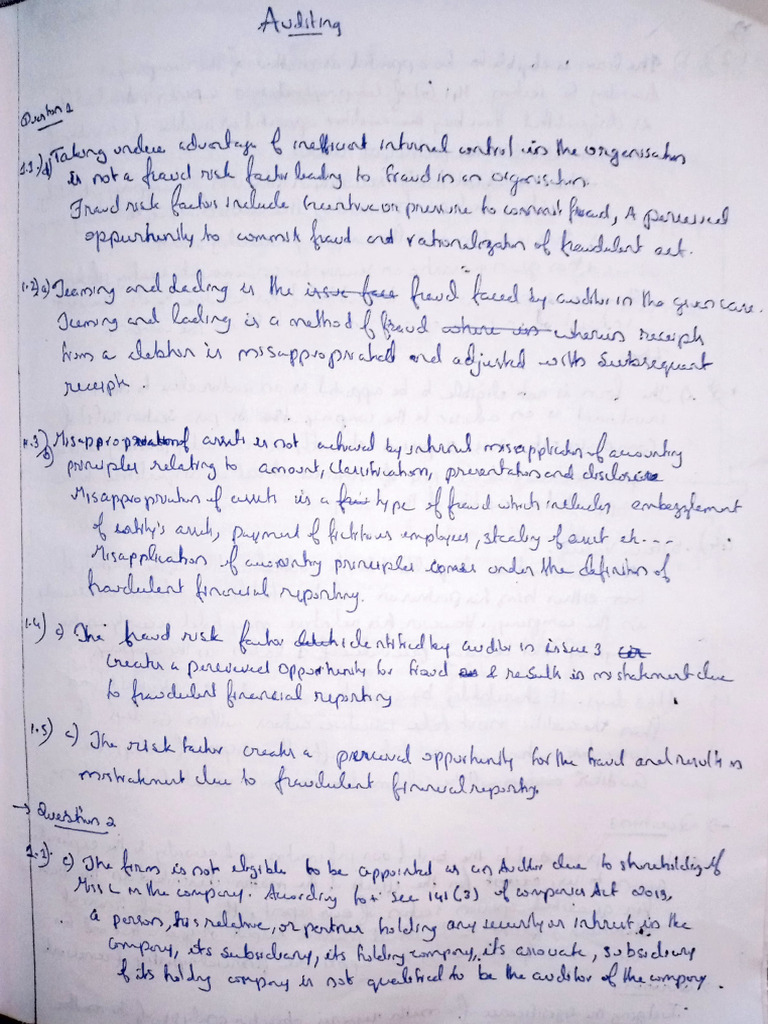 Auditing
Question 1
1.1.) d) Taking undue advantage of inefficient internal control in the organisation
is not a fraud risk factor leading to fraud in an organisation.
Fraud risk factors include Incentive or pressure to commit fraud, A perceived
oppurtunity to commit fraud and rationalization of fraudulent act.
1.2) a) Teeming and lading is the issue face fraud faced by auditor in the given case.
Teeming and lading is a method of fraud where in wherein receipt
from a debtor is missappropriated and adjusted with Subsequent
receipt.
1.3) b) Misappropriation of assets is not achieved by internal misapplication of accounting
principles relating to amount, classification, presentation and disclosure
Misappropriation of assets is a type of fraud which includes embezzlement
of entity's assets, payment of fictitious employees, stealing of asset etc....
Misapplication of accountry principles comes under the definition of
fraudulent financial reporting.
1.4) c) The fraud risk factor identified by auditor in issue 3
creates a perceived opportunity for fraud & results in mistatement due
to fraudulent financial reporting
1.5) c) The risk factor creates a perceived opportunity for the fraud and results in
mistratement due to fraudulent financial reporting.
→ Question 2
2.1). c) The firm is not eligible to be appointed as an Auditor due to shareholding of
Miss L in the company. According to sec 141(3) of companies Act 2013,
a person, his relative, or partner holding any security or intrest in the
company, its subsidiary, its holding company, its assouate, subsidiary
of its holding company is not qualified to be the auditor of the company.